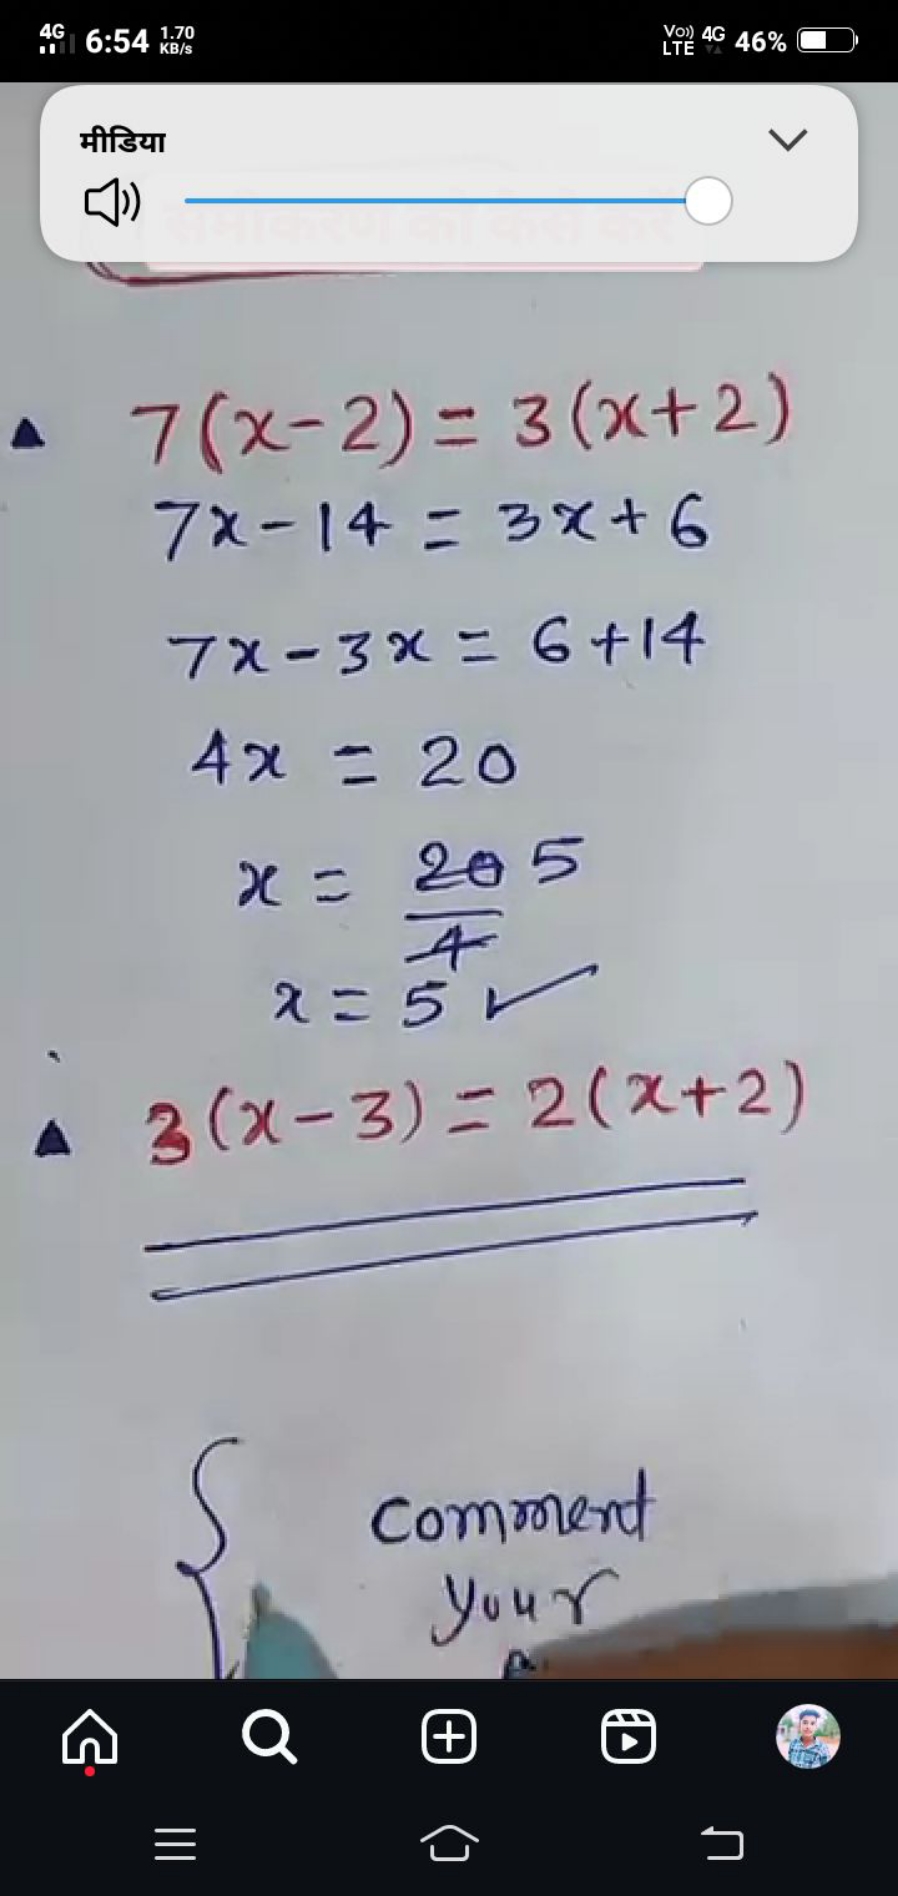 4G 6:54 1.70 KB/s Vo)) LTE 4G 46%
मीडिया
समीकरण को कैसे करें
7(x-2) = 3(x+2)
7x-14 = 3x+6
7x-3x = 6+14
4x = 20
x = 20/4 5
x = 5 ✓
3(x-3) = 2(x+2)
comment
your